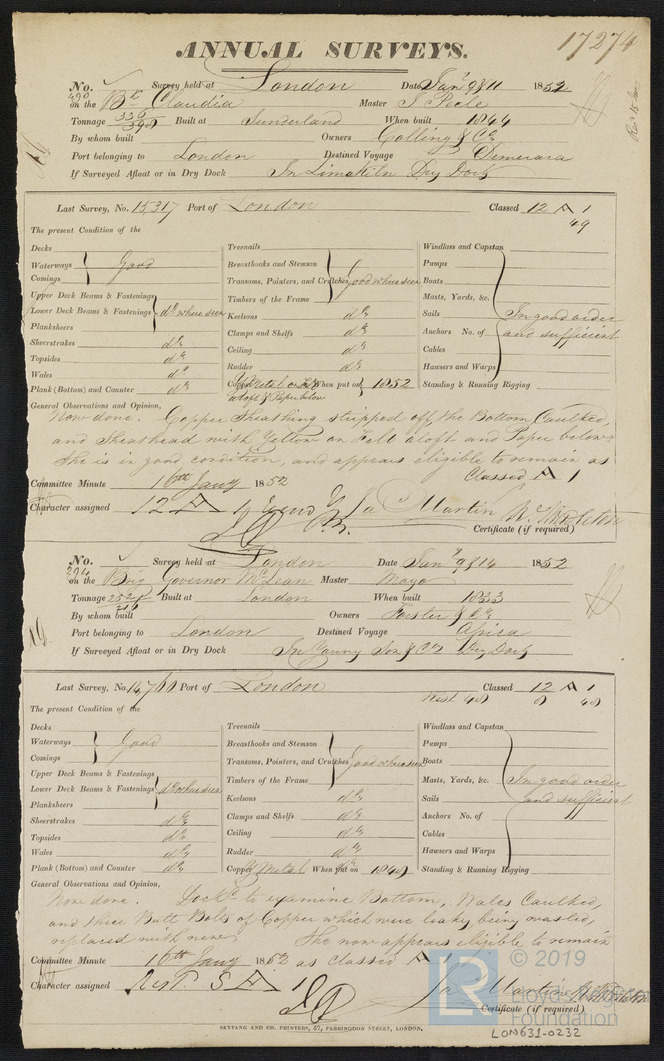 17274
ANNUAL SURVEYS.
No. 490 Survey held at London Date Jany 9 & 11 1852
on the Bk Claudia Master J Peele
Tonnage 336 / 390 Built at Sunderland When built 1844
By whom built Owners Colling & Co
Port belonging to London Destined Voyage Demerara
If Surveyed Afloat or in Dry Dock In Limekiln Dry Dock
Last Survey, No. 15317 Port of London Classed 12 A 1
49
The present Condition of the
Decks
Waterways
Comings
Good
Upper Deck Beams & Fastenings
Lower Deck Beams & Fastenings
Planksheers
do where seen
Sheerstrakes do
Topsides do
Wales do
Plank (Bottom) and Counter do
Treenails
Breasthooks and Stemson
Transoms, Pointers, and Crutches
Timbers of the Frame
Good where seen
Keelsons do
Clamps and Shelfs do
Ceiling do
Rudder do
Copper When put on 1852
Y Metal on felt
aloft & Paper below
Windlass and Capstan
Pumps
Boats
Masts, Yards, &c.
Sails
Anchors No. of
Cables
Hawsers and Warps
In good order
and sufficient
Standing & Running Rigging
General Observations and Opinion,
Now done. Copper Sheathing stripped off, the Bottom Caulked,
and Sheathead with Yellow on Felt aloft and Paper below
She is in good condition, and appears eligible to remain as
Classed A 1
Committee Minute 16th Jany 1852
Character assigned 12 A 1
Martin
Certificate (if required)
No. 294 Survey held at London Date Jany 9 & 14 1852
on the Brig Governor McLean Master Mayo
Tonnage 252 / 216 Built at London When built 1833
By whom built Owners Forster & Co
Port belonging to London Destined Voyage Africa
If Surveyed Afloat or in Dry Dock In Young Son & Co Dry Dock
Last Survey, No. 14,760 Port of London Classed 12 A 1
Rest. 48 8 48
The present Condition of the
Decks
Waterways
Comings
Good
Upper Deck Beams & Fastenings
Lower Deck Beams & Fastenings
Planksheers
do where seen
Sheerstrakes do
Topsides do
Wales do
Plank (Bottom) and Counter do
Treenails
Breasthooks and Stemson
Transoms, Pointers, and Crutches
Timbers of the Frame
Good where seen
Keelsons do
Clamps and Shelfs do
Ceiling do
Rudder do
Copper Y Metal When put on 1848
Windlass and Capstan
Pumps
Boats
Masts, Yards, &c.
Sails
Anchors No. of
Cables
Hawsers and Warps
In good order
and sufficient
Standing & Running Rigging
General Observations and Opinion,
Now done. Dockd to examine Bottom, Wales Caulked,
and three Butt Bolts of Copper which were leaky, being wasted,
replaced with new. She now appears eligible to remain
as classed A 1
Committee Minute 16th Jany 1852
Character assigned Rest. 8 A 1
Martin
Certificate (if required)
SEYFANG AND CO. PRINTERS, 57, FARRINGDON STREET, LONDON.
LR © 2019
Lloyd's Register
Foundation
LON631-0232